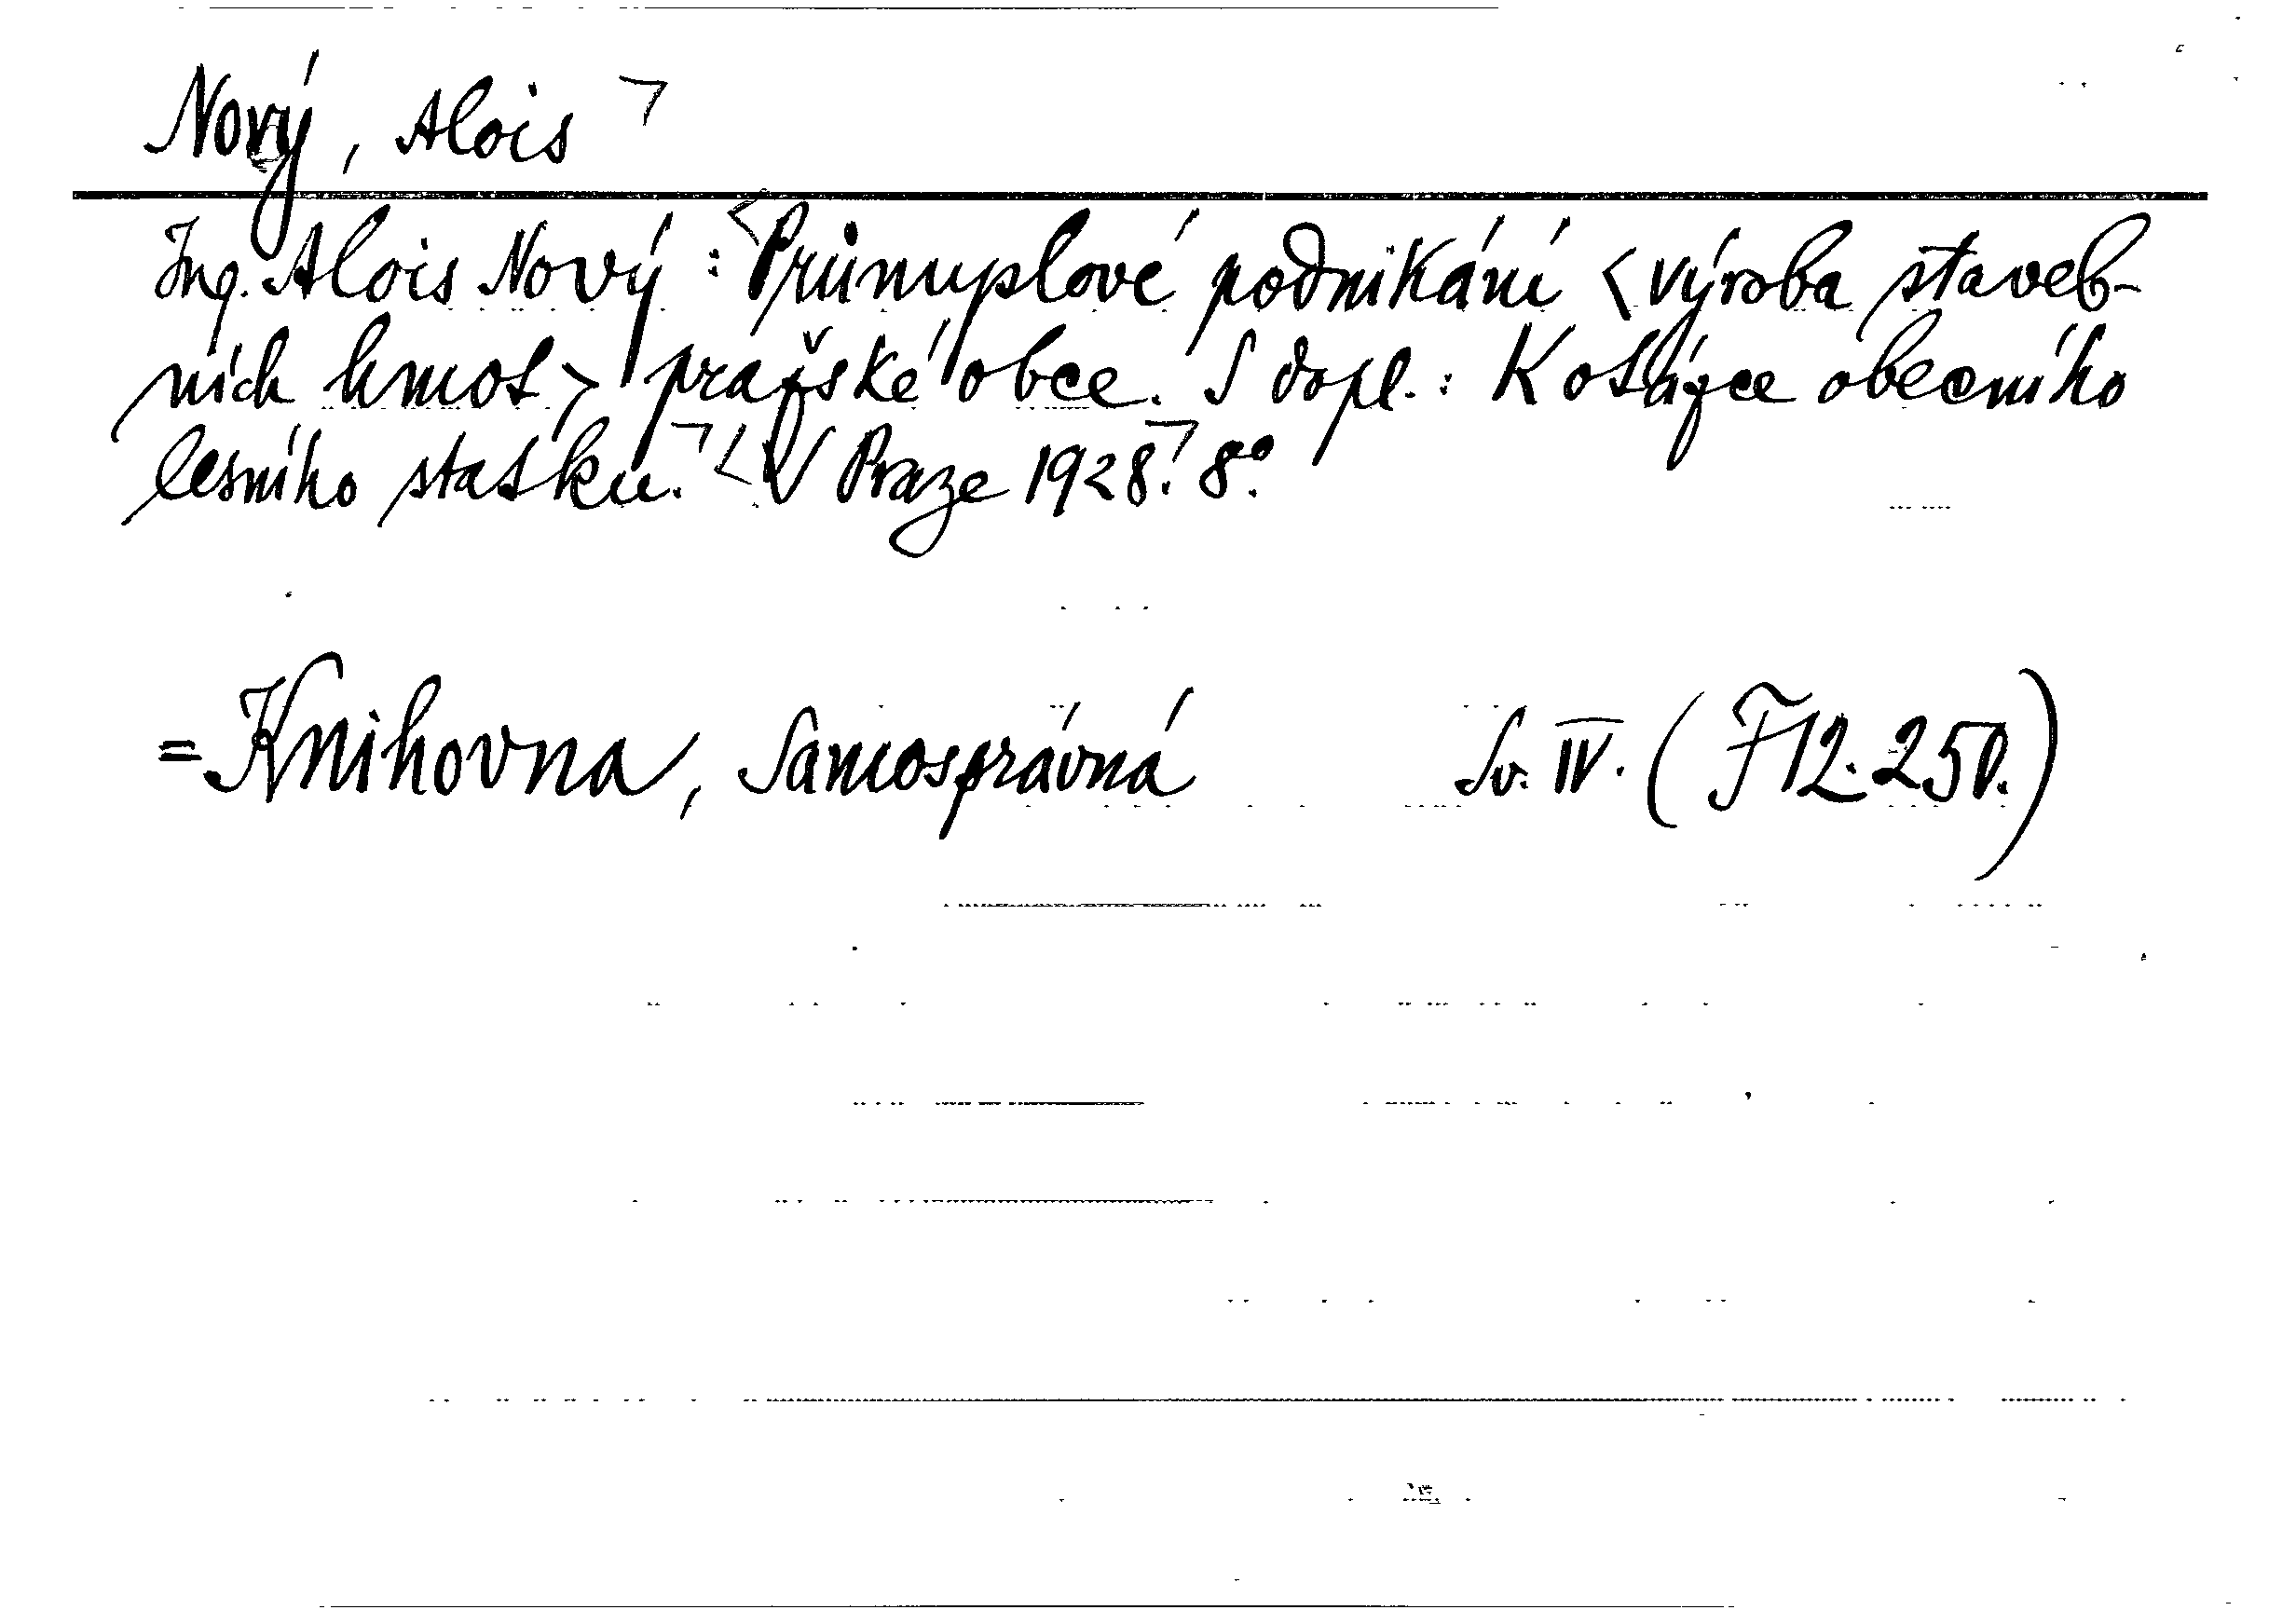 Nový, Alois
Ing. Alois Nový: Průmyslové podnikání <výroba staveb-
ních hmot> pražské obce. S dopl.: K otázce obecního
lesního statku. V Praze 1928. 8°.
= Knihovna, Samosprávná Sv. IV. (F 12.250.)